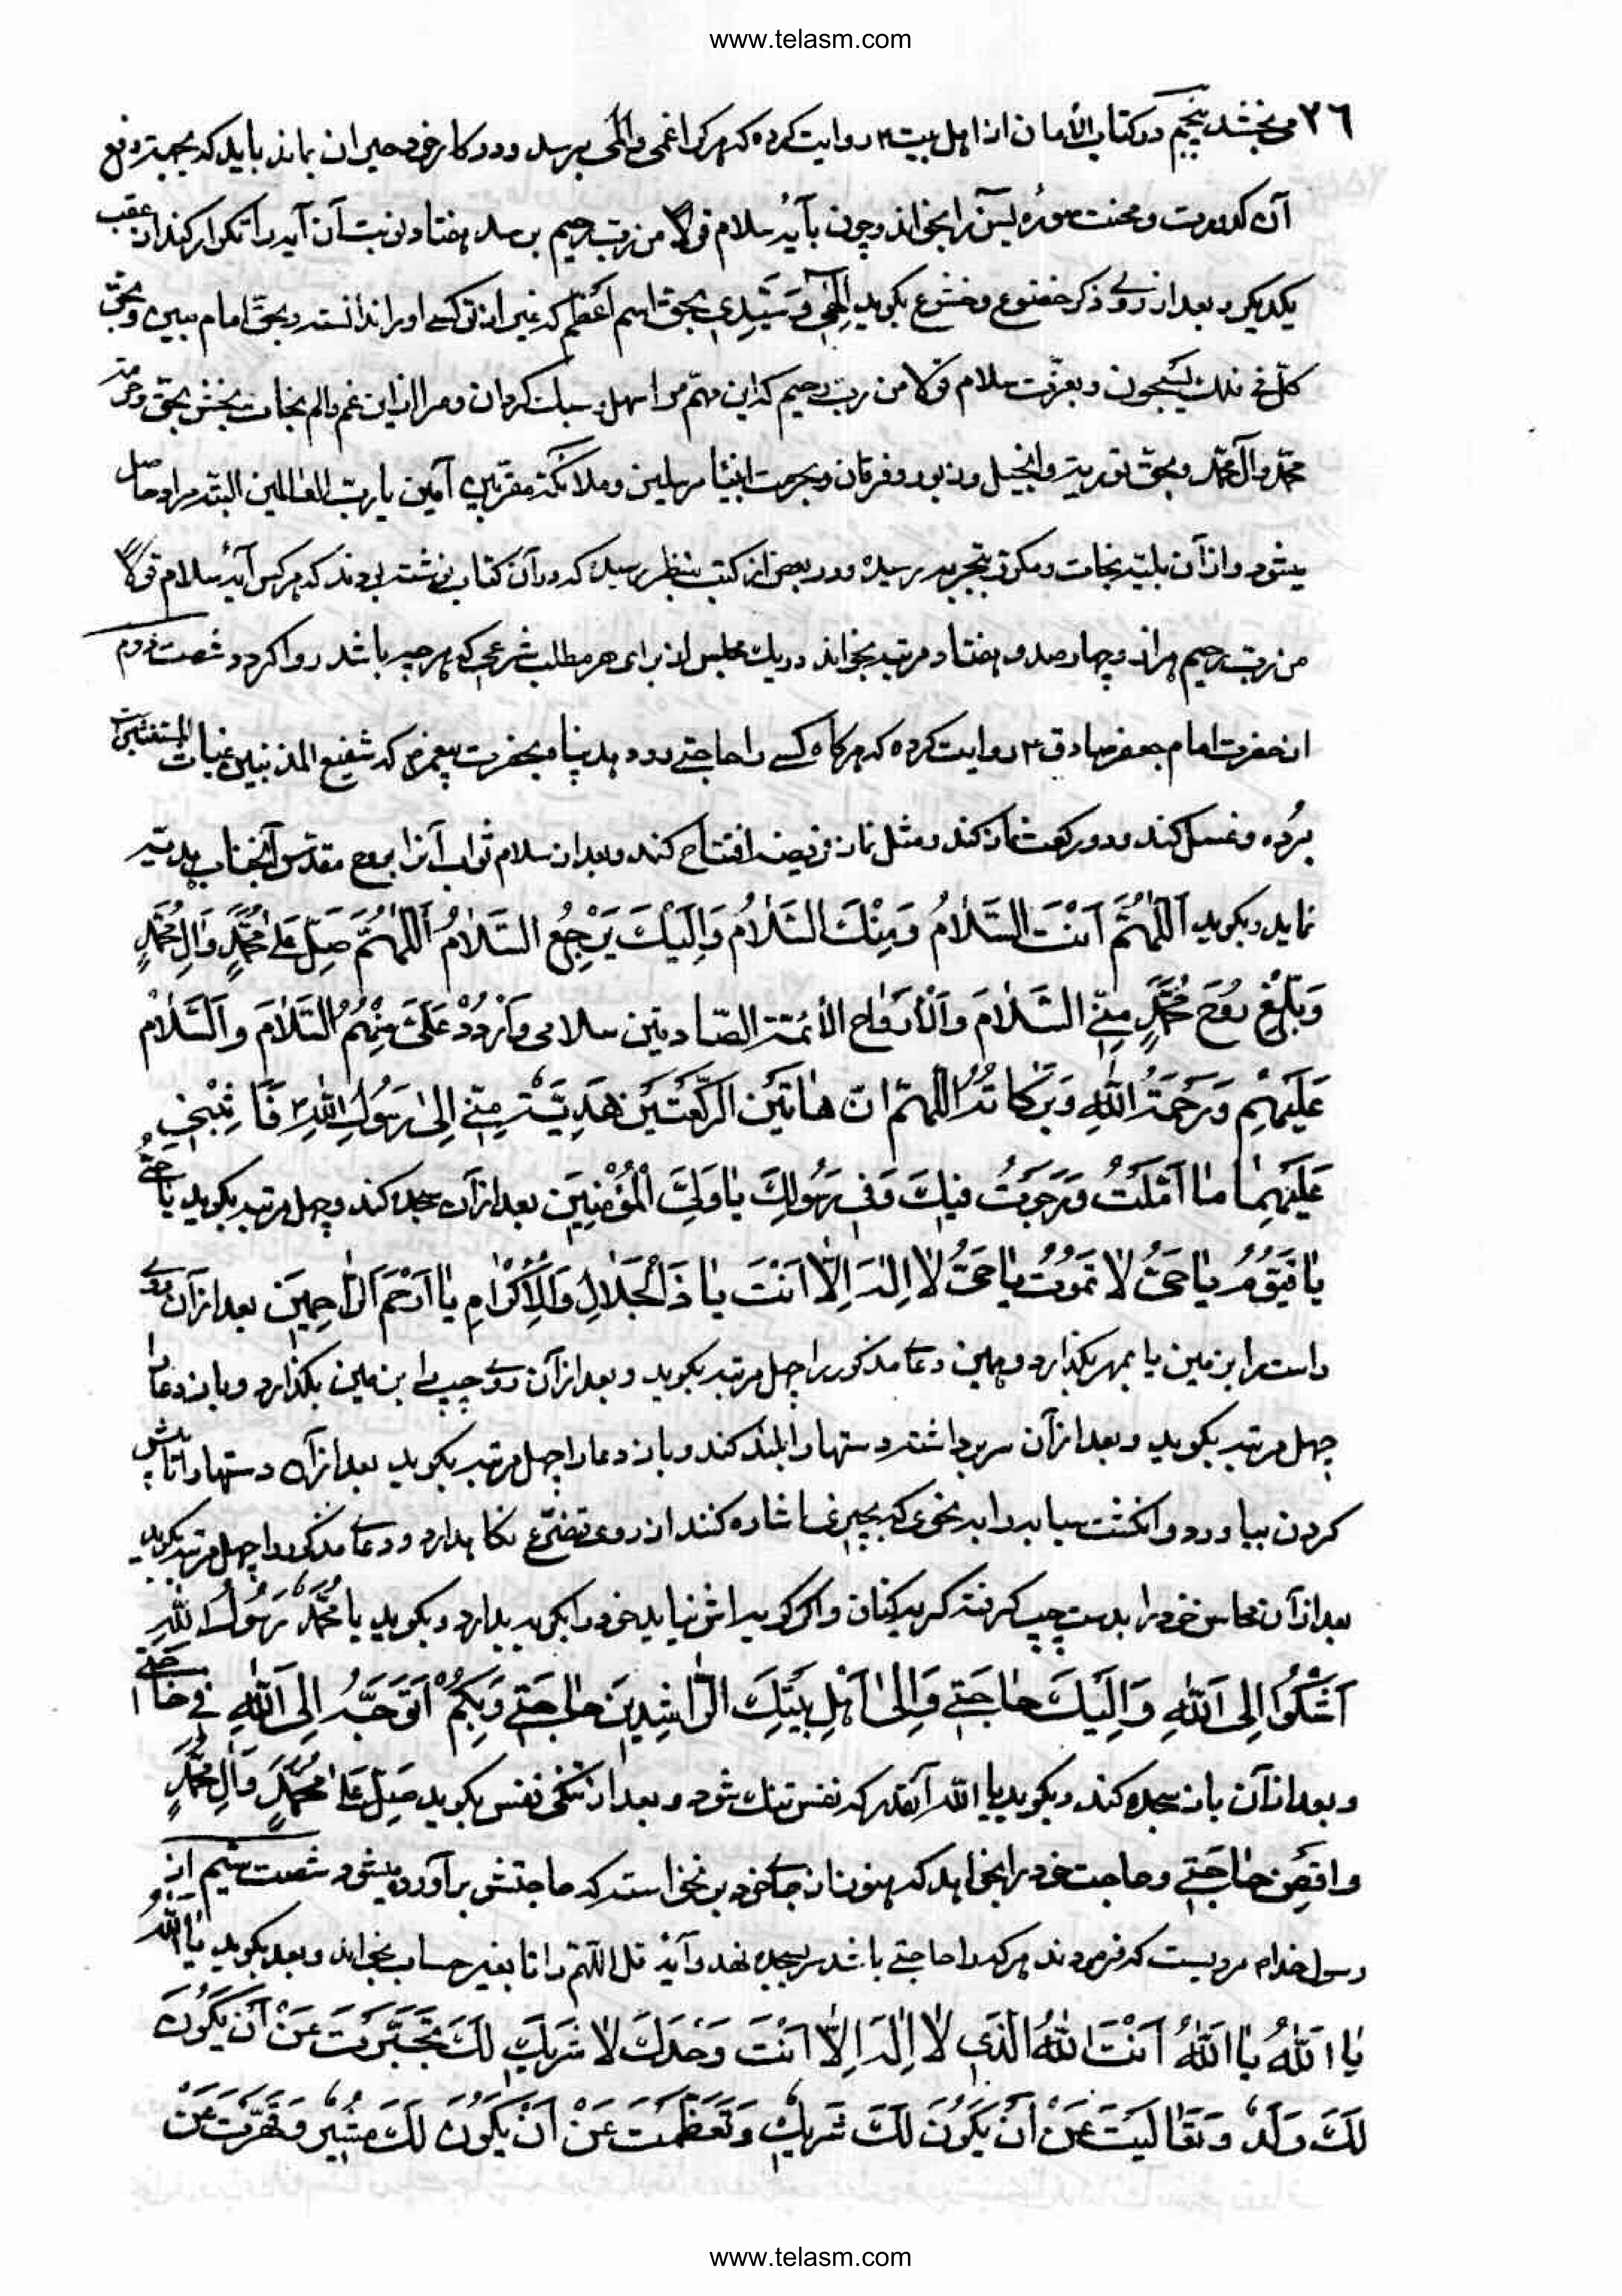 www.telasm.com
۳۶ می بخشد پنجم در کتاب الأمان از اهل بیت ۴ روایت کرده که هر کرا غمی و المی برسد و در کار خود حیران بماند باید که بجهة رفع
آن کدورت و محنت سوره یسٓ را بخواند و چون بآیهٔ سلام قولا من رب رحیم برسد هفتاد نوبت آن آیه را تکرار کند از عقب
یکدیگر و بعد از روی ذکر خضوع و خشوع بگوید الٓهی و سَیّدی بحق اسم اعظم که غیر از تو کسی او را ندانسته و بحق امام مبین و بحق
کلّ فی فلک یسبحون و بعزّت سلام قولا من رب رحیم که این مهمّ مرا سهل و سبک گردان و مرا از این غم و الم نجات بخش بحقّ و حرمة
محمّد و آل محمّد و بحق توریة و انجیل و زبور و فرقان و بحرمت انبیٓاء مرسلین و ملائکهٔ مقرّبین آمین یا ربّ العالمین البتّه مراد حاصل
میشود و از آن بلیّه نجات و مکرّر بتجربه رسیده و در بعض از کتب بنظر رسیده که در آن کتاب نوشته بودند که هر کس آیهٔ سلام قولا
من رب رحیم هزار و چهار صد و هفتاد مرتبه بخواند در یک مجلس از برای هر مطلب شرعی که هر چه باشد روا گردد شصت دوم
از حضرت امام جعفر صادق ۴ روایت کرده که هر گاه کسی را حاجتی رو دهد پناه بحضرت پیغمبر ص که شفیع المذنبین غیاث المستغیثین
بُرده و غسل کند و دو رکعت نماز کند و مثل نماز فریضه افتتاح کند و بعد از سلام ثواب آنرا بروح مقدّس آنجناب هدیّه
نماید و بگوید اَللّٰهُمَّ اَنْتَ السَّلاٰمُ وَمِنْكَ السَّلاٰمُ وَاِلَيْكَ يَرْجِعُ السَّلاٰمُ اَللّٰهُمَّ صَلِّ عَلیٰ مُحَمَّدٍ وَاٰلِ مُحَمَّدٍ
وَبَلِّغْ رُوحَ مُحَمَّدٍ مِنّی السَّلاٰمَ وَاَلْاَرْوٰاحِ الأئمّة الصّادقین سلامی وَارْدُدْ عَلَیَّ مِنْهُمُ السَّلاٰمَ وَالسَّلاٰمُ
عَلَيْهِمْ وَرَحْمَةُ اللّٰهِ وَبَرَكاتُهُ اللّهمّ انّ هٰاتَيْنِ الرَّكْعَتَيْنِ هَدِيَّةٌ مِنّی اِلیٰ رَسُولِ اللّٰهِ ص فَاَثِبْنی
عَلَيْهِمٰا مٰا اَمَّلْتُ وَرَجَوْتُ فیكَ وَفی رَسُولِكَ يٰا وَلِیَّ الْمُؤْمِنينَ بعد از آن سجده کند و چهل مرتبه بگوید یٰا حَیُّ
يٰا قَيُّومُ يٰا حَیُّ لاٰ تَمُوتُ يٰا حَیُّ لاٰ اِلٰهَ اِلاّٰ اَنْتَ يٰا ذَالْجَلاٰلِ وَالْاِكْرٰامِ يٰا اَرْحَمَ الرّٰاحِمينَ بعد از آن روی
راست را بزمین یا بمهر بگذارد و همین دعای مذکور را چهل مرتبه بگوید و بعد از آن روی چپ را بزمین بگذارد و باز دعا را
چهل مرتبه بگوید و بعد از آن سر برداشته دستها را بلند کند و باز دعا را چهل مرتبه بگوید بعد از آن دستها را تا پیش
گردن بیاورد و انگشت سبابه را بنحوی که بچیزی اشاره کنند از روی تضرّع نگاه دارد و دعای مذکور را چهل مرتبه بگوید
بعد از آن محاسن خود را بدست چپ گرفته گریه کنان و اگر گریه اش نیاید خود را بگریه بدارد و بگوید یا مُحَمَّدُ یٰا رَسُولَ اللّٰهِ
اَشْكُوا اِلَی اللّٰهِ وَاِلَيْكَ حٰاجَتی وَاِلیٰ اَهْلِ بَيْتِكَ الرّٰاشِدينَ حٰاجَتی وَبِكُمْ اَتَوَجَّهُ اِلَی اللّٰهِ فی حٰاجَتی
و بعد از آن باز سجده کند و بگوید یا اللّٰه آنقدر که نفس تنگ شود و بعد از تنگی نفس بگوید صَلِّ عَلیٰ مُحَمَّدٍ وَآلِ مُحَمَّدٍ
وَاقْضِ حٰاجَتی و حاجت خود را بخواهد که هنوز از جای خود برنخواسته که حاجتش برآورده میشود شصت سیّم از
رسول خدا ص مرویست که فرمودند هر که را حاجتی باشد سر بسجده نهد و آیهٔ قل اللّهمّ را تا بغیر حساب بخواند و بعد بگوید یٰا اَللّٰهُ
يٰا اَللّٰهُ يٰا اَللّٰهُ اَنْتَ اللّٰهُ الَّذی لاٰ اِلٰهَ اِلاّٰ اَنْتَ وَحْدَكَ لاٰ شَریكَ لَكَ تَجَبَّرْتَ عَنْ اَنْ يَكُونَ
لَكَ وَلَدٌ وَتَعٰالَيْتَ عَنْ اَنْ يَكُونَ لَكَ شَریكٌ وَتَعَظَّمْتَ عَنْ اَنْ يَكُونَ لَكَ مُشیرٌ وَقَهَّرْتَ عَنْ
www.telasm.com